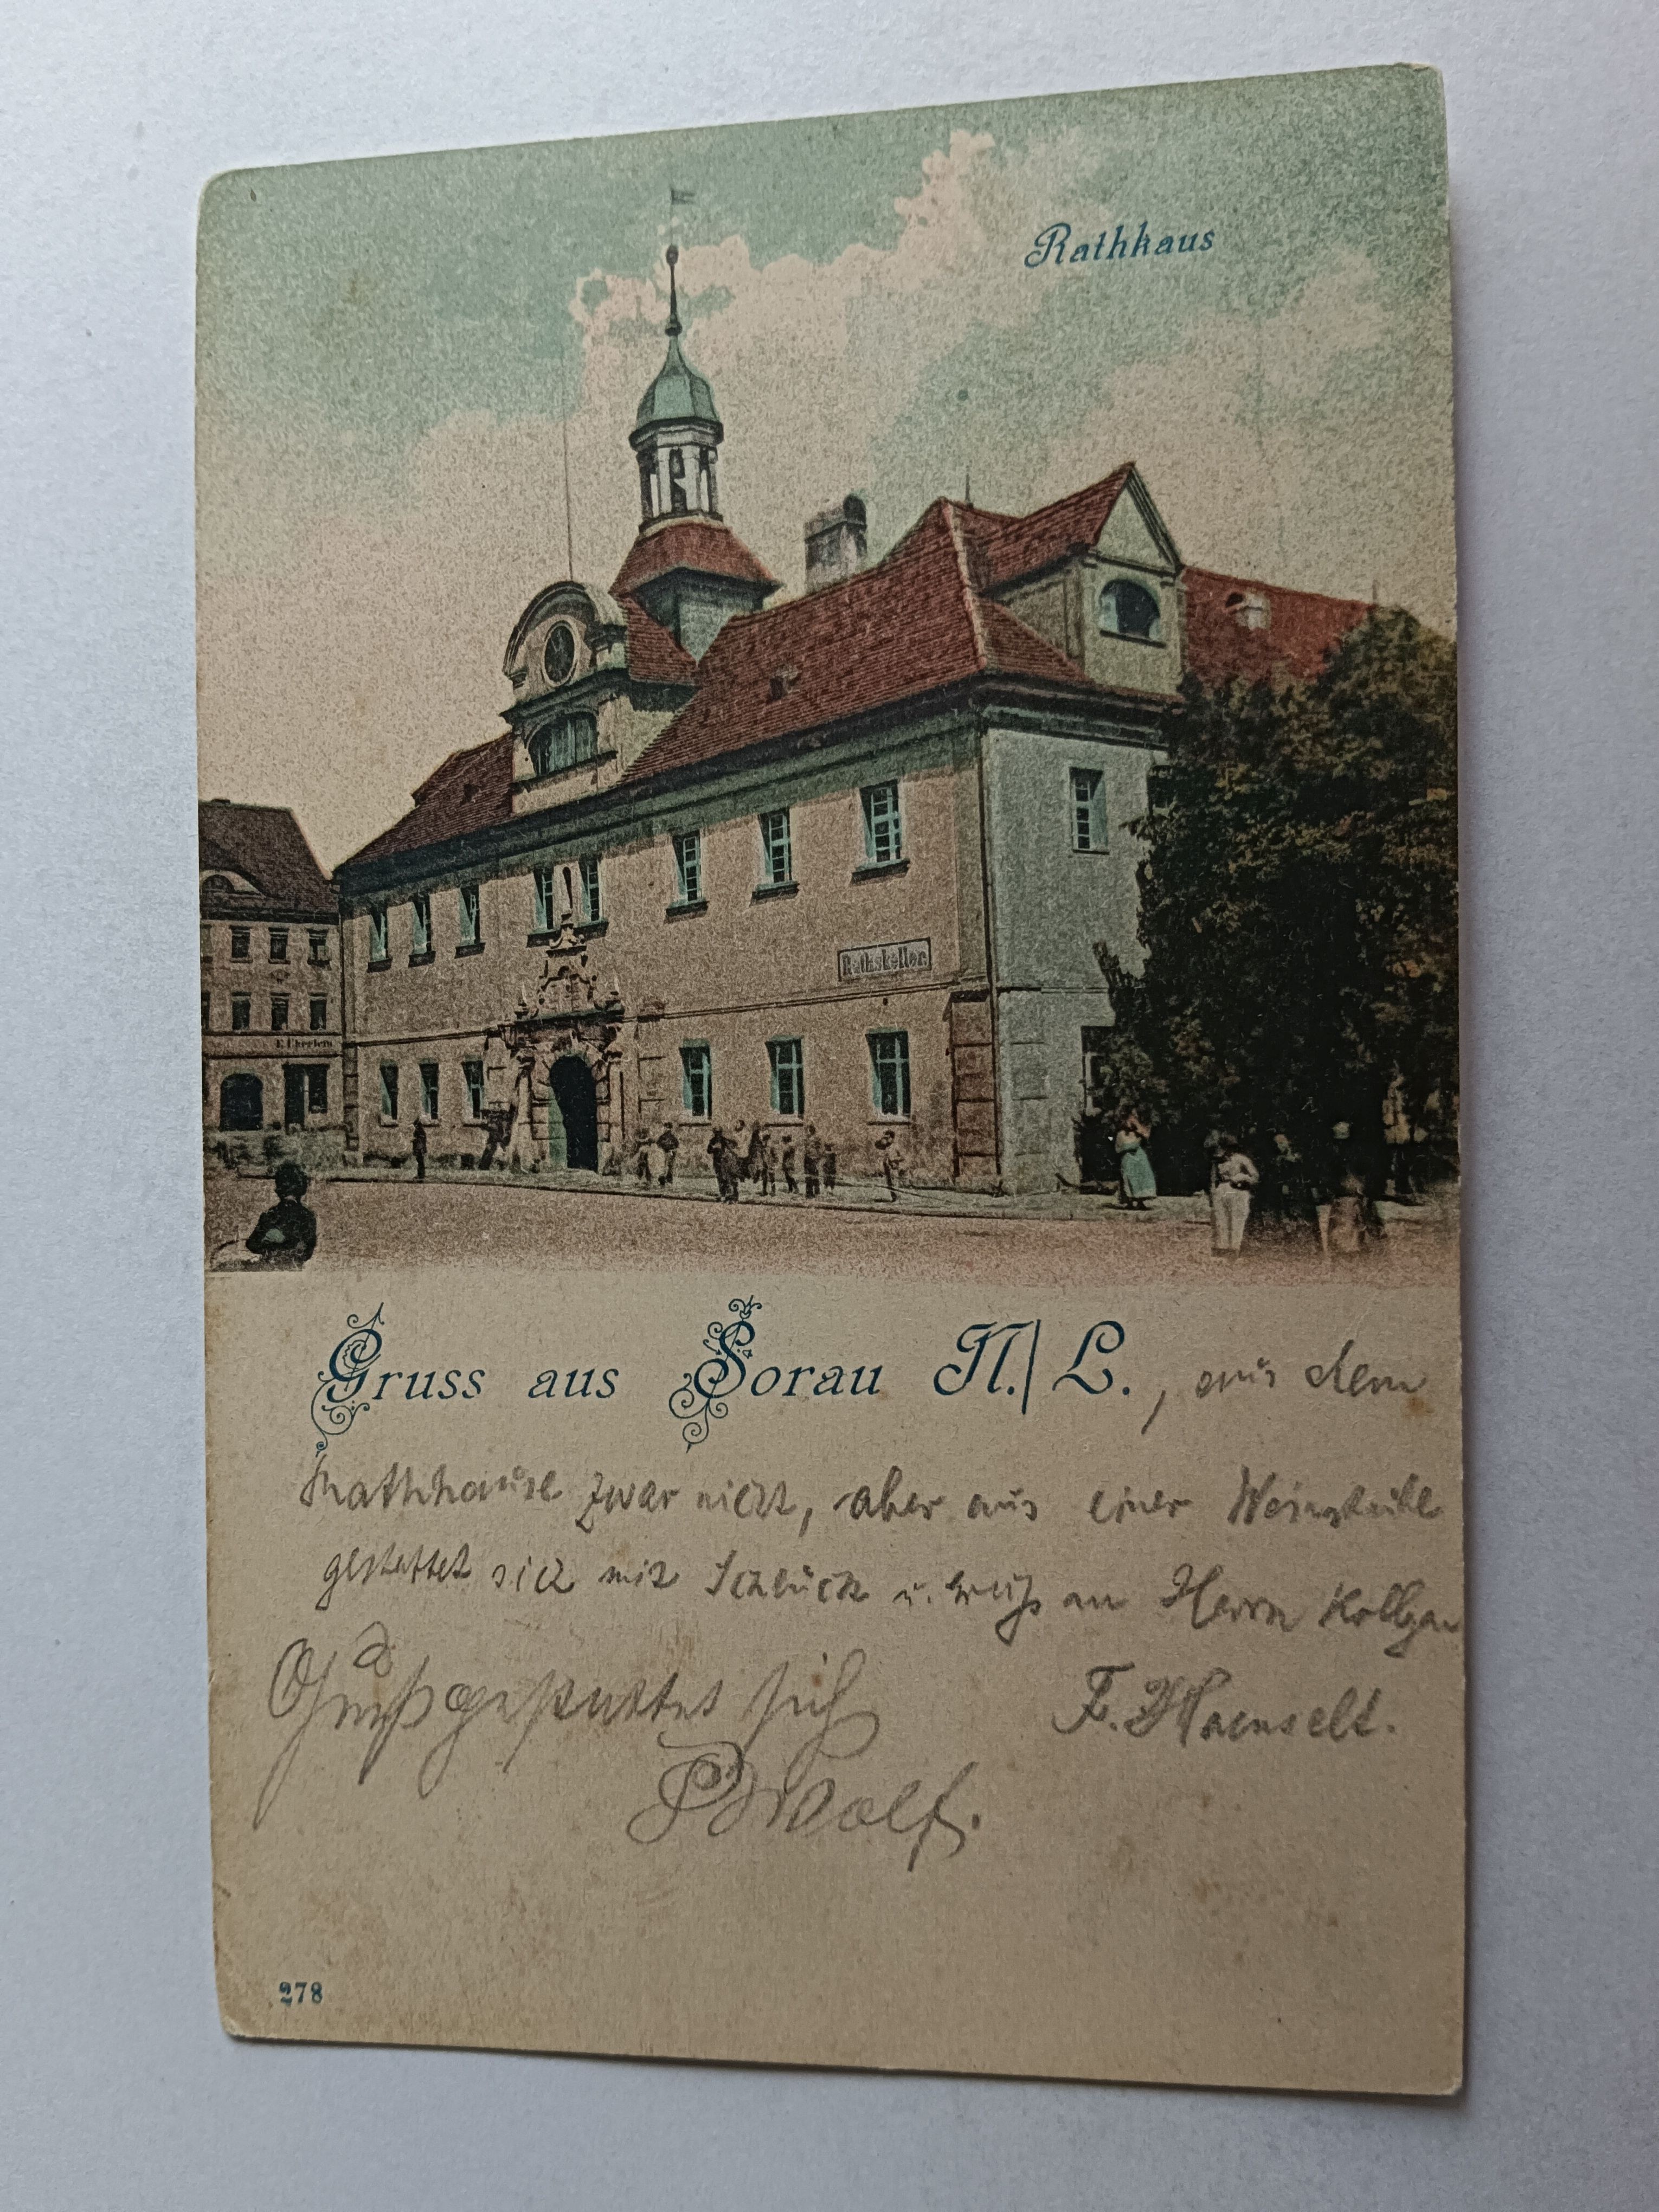 Rathhaus
Rathskeller
Gruss aus Sorau N./L., aus dem
Rathhause zwar nicht, aber aus einer Weinstube
gestattet sich mit Schluck u. Gruß an Herrn
F. Haenselt.
sich
Wolf.
278